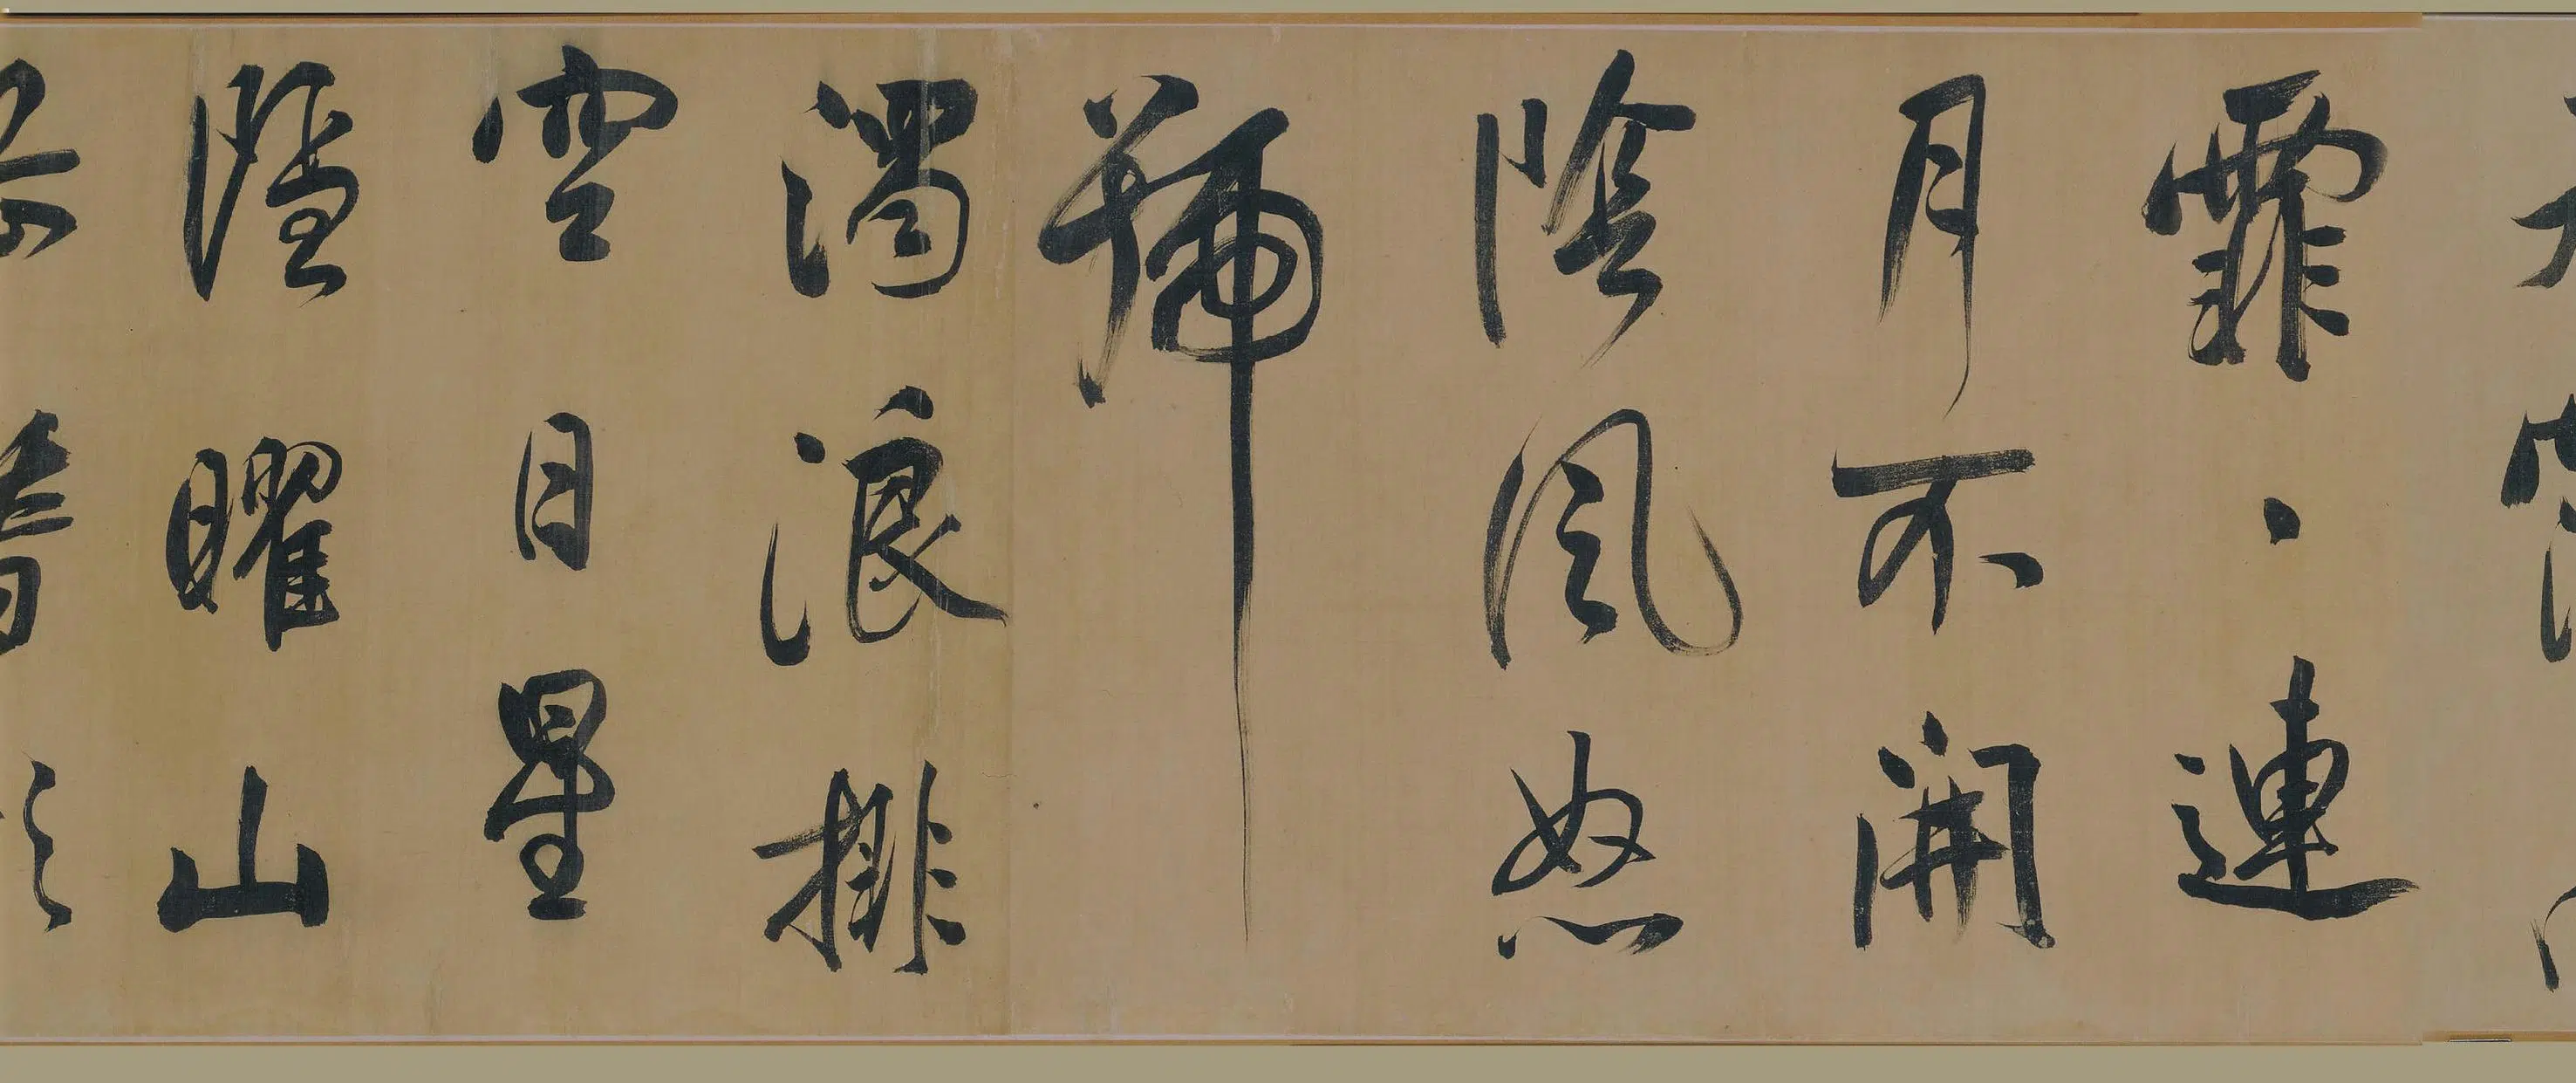 霏〻連
月不開
陰風怒
號
濁浪排
空日星
隱曜山